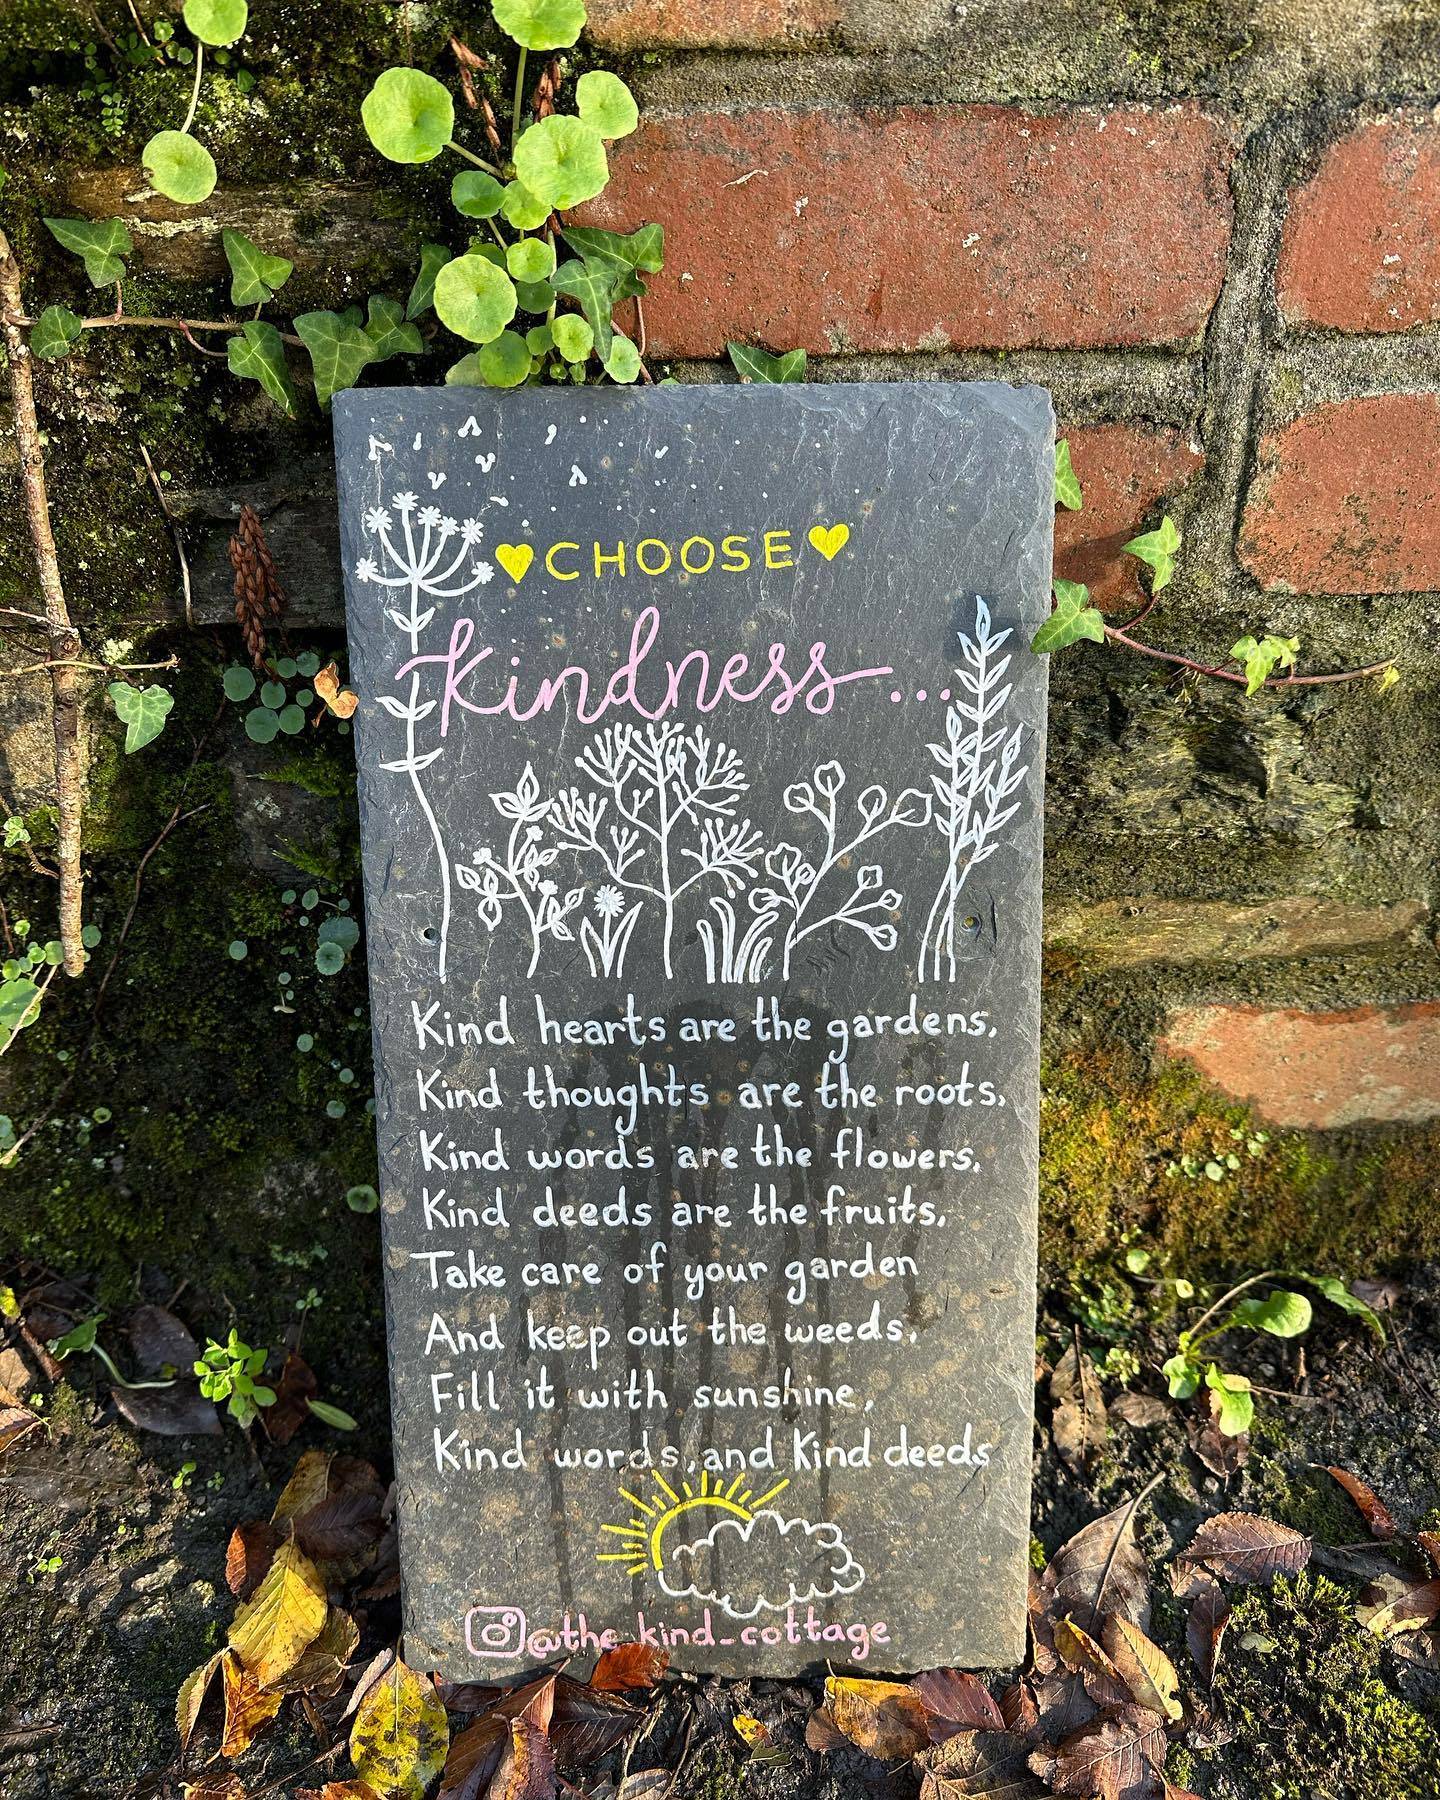 CHOOSE
Kindness...
Kind hearts are the gardens,
Kind thoughts are the roots,
Kind words are the flowers,
Kind deeds are the fruits,
Take care of your garden
And keep out the weeds,
Fill it with sunshine,
Kind words, and Kind deeds
@the_kind_cottage